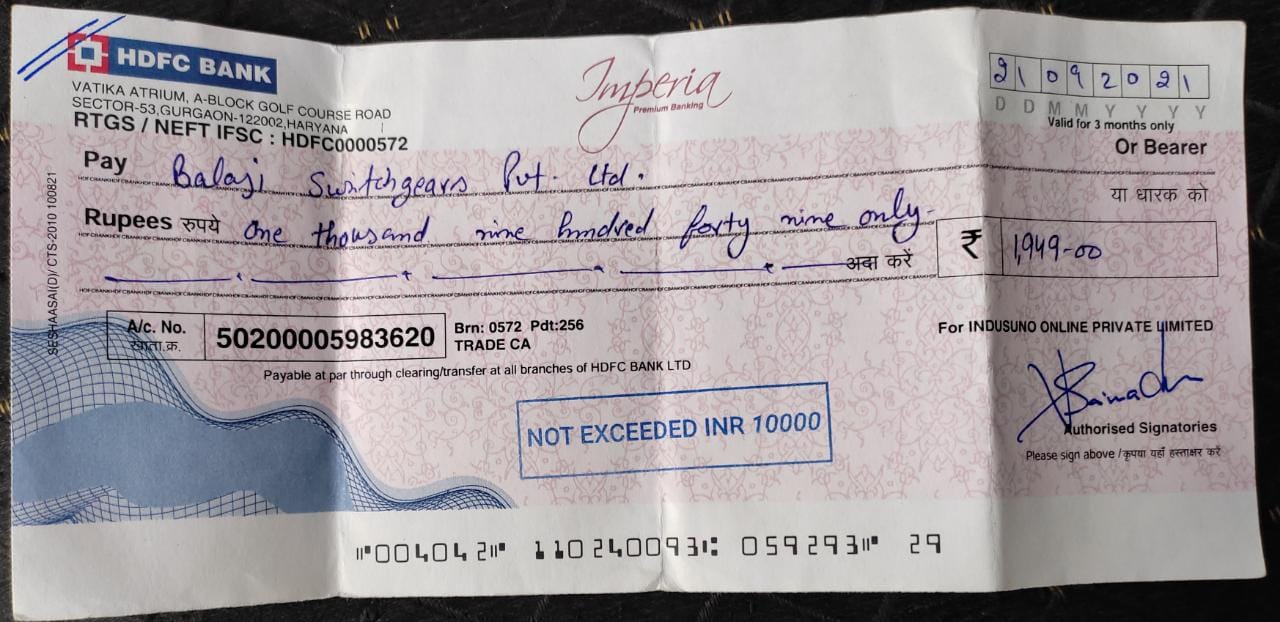 HDFC BANK
VATIKA ATRIUM, A-BLOCK GOLF COURSE ROAD
SECTOR-53,GURGAON-122002,HARYANA
RTGS / NEFT IFSC : HDFC0000572
Imperia
Premium Banking
21092021
D D M M Y Y Y Y
Valid for 3 months only
Pay Balaji Switchgears Pvt. Ltd.
Or Bearer
या धारक को
Rupees रुपये One thousand nine hundred forty nine only
अदा करें
₹ 1,949-00
SESHAASAI(D)/ CTS-2010 100821
A/c. No.
खाता.क्र.
50200005983620
Brn: 0572 Pdt:256
TRADE CA
For INDUSUNO ONLINE PRIVATE LIMITED
Payable at par through clearing/transfer at all branches of HDFC BANK LTD
NOT EXCEEDED INR 10000
Authorised Signatories
Please sign above / कृपया यहाँ हस्ताक्षर करें
⑈004042⑈ 110240093⑆ 059293⑈ 29